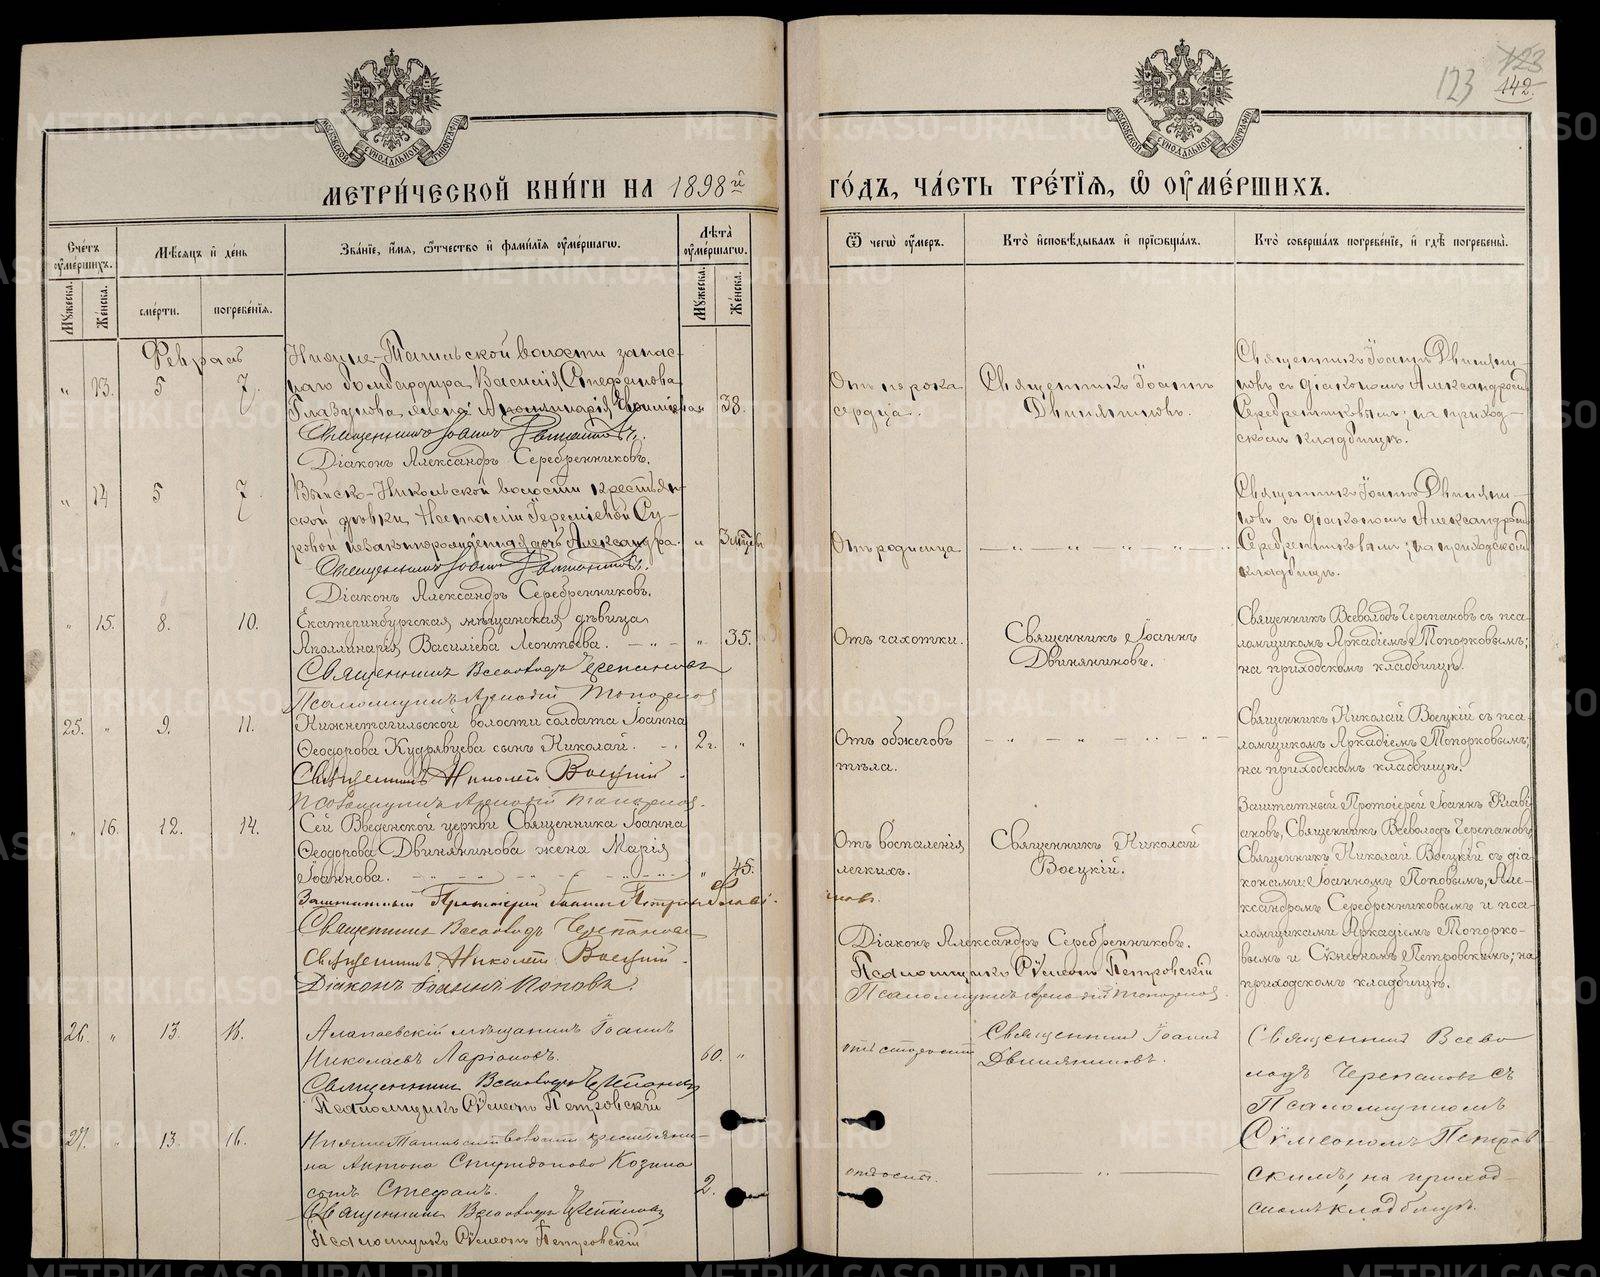 123
123
142.
МОСКОВСКОЙ СУНОДАЛЬНОЙ ТИПОГРАФІИ
МОСКОВСКОЙ СУНОДАЛЬНОЙ ТИПОГРАФІИ
МЕТРИ́ЧЕСКОЙ КНИ́ГИ НА 1898й ГО́ДЪ, ЧА́СТЬ ТРЕ́ТІѦ, Ѽ ОУ҆МЕ́РШИХЪ.
Сче́тъ оу҆ме́ршихъ.
Мѣ́сѧцъ и҆ де́нь
Зва́нїе, и҆́мѧ, ѻ҆́тчество и҆ фами́лїѧ оу҆ме́ршагѡ.
Лѣ́та оу҆ме́ршагѡ.
Ѿ чегѡ̀ оу҆́меръ.
Кто̀ и҆сповѣ́дывалъ и҆ прїѡбща́лъ.
Кто̀ соверша́лъ погребе́нїе, и҆ гдѣ̀ погребены̀.
Мꙋ́жеска.
Же́нска.
сме́рти.
погребе́нїѧ.
Мꙋ́жеска.
Же́нска.
Февраль
" 13. 5 7.
Нижне-Тагильской волости запас-
наго бомбардира Василія Стефанова
Глазунова жена Аполлинарія
38.
Священникъ Іоаннъ Двиняниновъ.
Діаконъ Александръ Серебренниковъ.
Отъ порока
сердца.
Священникъ Іоаннъ
Двиняниновъ.
Священникъ Іоаннъ Двиняни-
новъ съ діакономъ Александромъ
Серебренниковымъ; на приход-
скомъ кладбищѣ.
" 14 5 7
Выйско-Никольской волости крестьян-
ской дѣвки Іереміевой Су-
ровой незаконнорожденная дочь Александра.
" 3 мѣсяц.
Священникъ Іоаннъ Двиняниновъ.
Діаконъ Александръ Серебренниковъ.
Отъ родимца — " — " — " — " —
Священникъ Іоаннъ Двиняни-
новъ съ діакономъ Александромъ
Серебренниковымъ; на приходскомъ
кладбищѣ.
" 15. 8. 10.
Екатеринбургская мѣщанская дѣвица
Аполлинарія Василіева Леонтьева. — " —
" 35.
Священникъ Всеволодъ Черепановъ
Псаломщикъ Аркадій Топорковъ
Отъ чахотки.
Священникъ Іоаннъ
Двиняниновъ.
Священникъ Всеволодъ Черепановъ съ пса-
ломщикомъ Аркадіемъ Топорковымъ;
на приходскомъ кладбищѣ.
25. " 9. 11.
Нижнетагильской волости солдата Іоанна
Ѳеодорова Кудрявцева сынъ Николай.
2 г. "
Священникъ Николай Воецкій.
Псаломщикъ Аркадій Топорковъ.
Отъ обжеговъ
тѣла.
— " — " — " — " —
Священникъ Николай Воецкій съ пса-
ломщикомъ Аркадіемъ Топорковымъ;
на приходскомъ кладбищѣ.
" 16. 12. 14.
Сей Введенской церкви Священника Іоанна
Ѳеодорова Двинянинова жена Марія
Іоаннова.
" 45.
Заштатный Протоіерей Іоаннъ Петровъ Флавіановъ.
Священникъ Всеволодъ Черепановъ
Священникъ Николай Воецкій.
Діаконъ Іоаннъ Поповъ.
Отъ воспаленія
легкихъ.
Священникъ Николай
Воецкій.
Діаконъ Александръ Серебренниковъ.
Псаломщикъ Сѵмеонъ Петровскій
Псаломщикъ Аркадій Топорковъ.
Заштатный Протоіерей Іоаннъ Флаві-
ановъ, Священникъ Всеволодъ Черепановъ,
Священникъ Николай Воецкій съ діа-
конами: Іоанномъ Поповымъ, Але-
ксандромъ Серебренниковымъ и пса-
ломщиками Аркадіемъ Топорко-
вымъ и Сѵмеономъ Петровскимъ; на
приходскомъ кладбищѣ.
26. " 13. 16.
Алапаевскій мѣщанинъ Іоаннъ
Николаевъ Ларіоновъ.
60. "
Священникъ Всеволодъ Черепановъ
Псаломщикъ Сѵмеонъ Петровскій
отъ старости
Священникъ Іоаннъ
Двиняниновъ.
Священникъ Всево
лодъ Черепановъ съ
Псаломщикомъ
Сѵмеономъ Петров
скимъ; на приход-
скомъ кладбищѣ.
27. " 13. 16.
Нижнетагильской волости крестьяни-
на Антона Спиридонова Козина
сынъ Стефанъ.
2.
Священникъ Всеволодъ Черепановъ
Псаломщикъ Сѵмеонъ Петровскій
отъ оспы.
"
METRIKI.GASO-URAL.RU